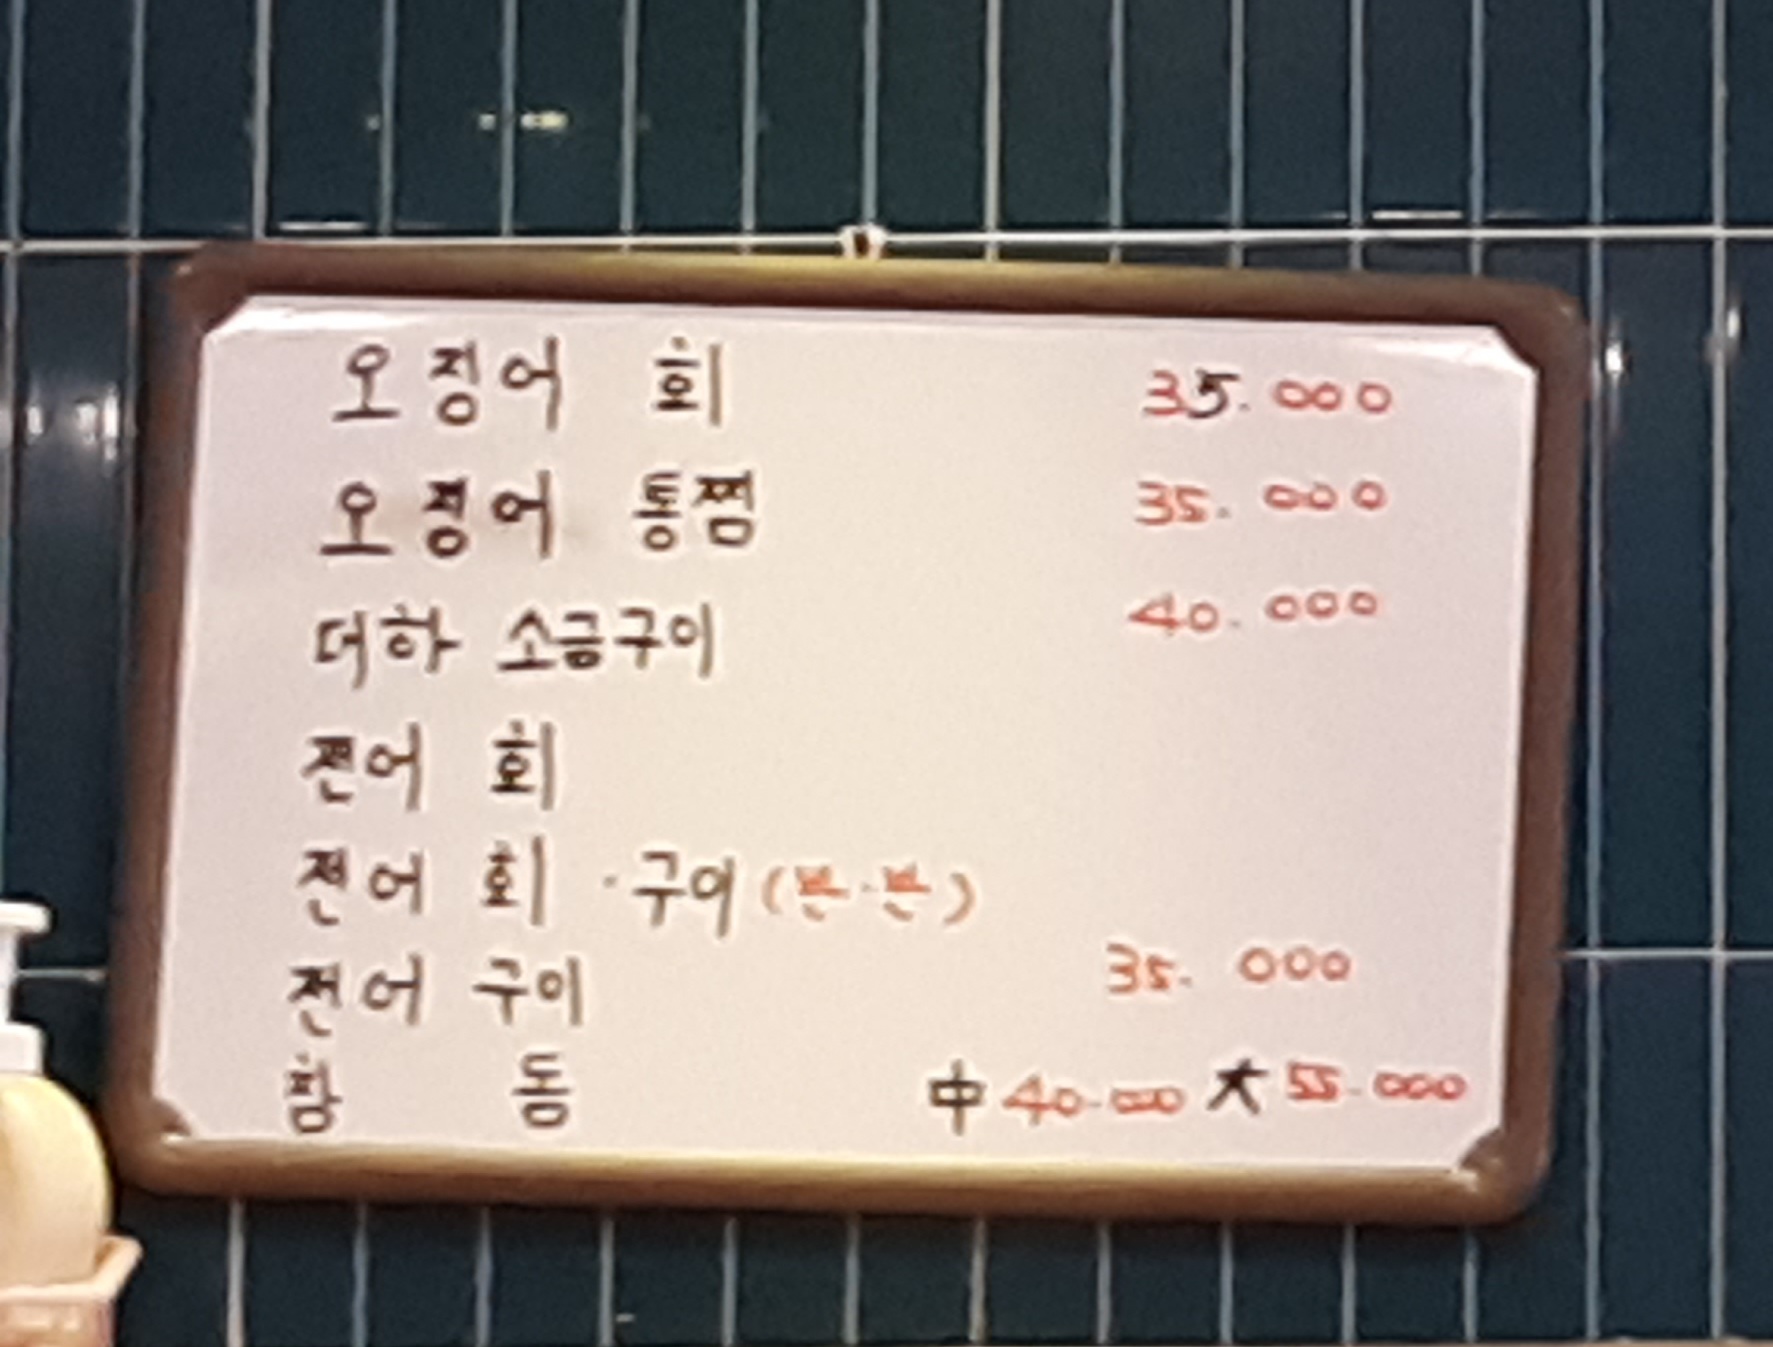 오징어 회 35.000
오징어 통찜 35.000
대하 소금구이 40.000
전어 회
전어 회 · 구이 (반·반)
전어 구이 35.000
참 돔 中 40.000 大 55.000